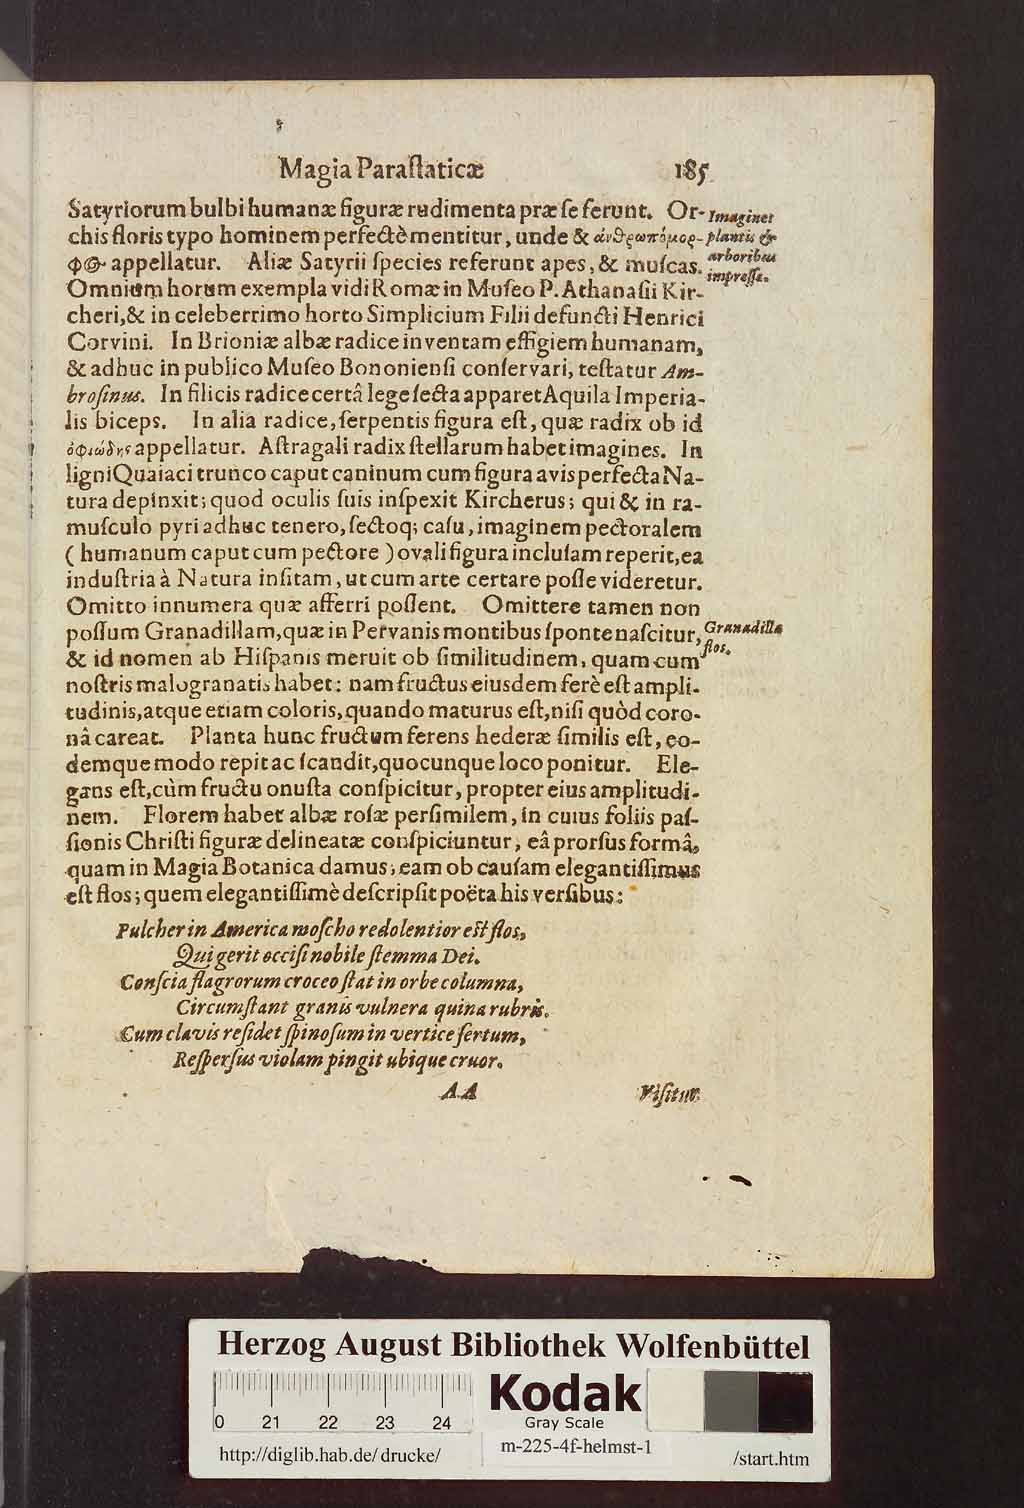 Magia Paraſtaticæ 185
Satyriorum bulbi humanæ figuræ rudimenta præ ſe ferunt. Or-
chis floris typo hominem perfectè mentitur, unde & ἀνθρωπόμορ-
φος appellatur. Aliæ Satyrii ſpecies referunt apes, & muſcas.
Omnium horum exempla vidi Romæ in Muſeo P. Athanaſii Kir-
cheri, & in celeberrimo horto Simplicium Filii defuncti Henrici
Corvini. In Brioniæ albæ radice inventam effigiem humanam,
& adhuc in publico Muſeo Bononienſi conſervari, teſtatur Am-
broſinus. In filicis radice certâ lege ſecta apparet Aquila Imperia-
lis biceps. In alia radice, ſerpentis figura eſt, quæ radix ob id
ὀφιώδης appellatur. Aſtragali radix ſtellarum habet imagines. In
ligni Quaiaci trunco caput caninum cum figura avis perfecta Na-
tura depinxit; quod oculis ſuis inſpexit Kircherus; qui & in ra-
muſculo pyri adhuc tenero, ſectoq; caſu, imaginem pectoralem
( humanum caput cum pectore ) ovali figura incluſam reperit, ea
induſtria à Natura inſitam, ut cum arte certare poſſe videretur.
Omitto innumera quæ afferri poſſent. Omittere tamen non
poſſum Granadillam, quæ in Pervanis montibus ſponte naſcitur,
& id nomen ab Hiſpanis meruit ob ſimilitudinem, quam cum
noſtris malogranatis habet: nam fructus eiusdem ferè eſt ampli-
tudinis, atque etiam coloris, quando maturus eſt, niſi quòd coro-
nâ careat. Planta hunc fructum ferens hederæ ſimilis eſt, eo-
demque modo repit ac ſcandit, quocunque loco ponitur. Ele-
gans eſt, cùm fructu onuſta conſpicitur, propter eius amplitudi-
nem. Florem habet albæ roſæ perſimilem, in cuius foliis paſ-
ſionis Chriſti figuræ delineatæ conſpiciuntur, eâ prorſus formâ,
quam in Magia Botanica damus; eam ob cauſam elegantiſſimus
eſt flos; quem elegantiſſimè deſcripſit poëta his verſibus:
Pulcher in America moſcho redolentior eſt flos,
Qui gerit occiſi nobile ſtemma Dei.
Conſcia flagrorum croceo ſtat in orbe columna,
Circumſtant granis vulnera quina rubris.
Cum clavis reſidet ſpinoſum in vertice ſertum,
Reſperſus violam pingit ubique cruor.
AA Viſitur
Imagines
plantis &
arboribus
impreſſæ.
Granadilla
flos.
Herzog August Bibliothek Wolfenbüttel
0 21 22 23 24
Kodak
Gray Scale
http://diglib.hab.de/drucke/ m-225-4f-helmst-1 /start.htm